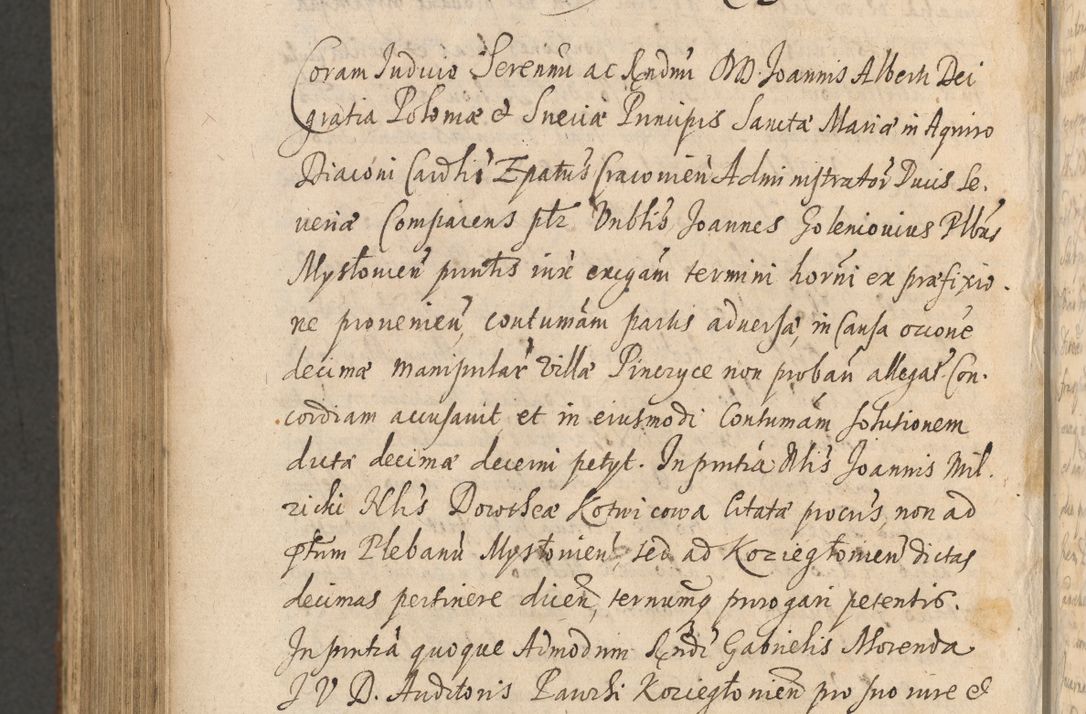 Coram Iudicio Serennũ ac Rndnũ DD Joannis Alberti Dei
gratia Poloniæ et Sueciæ Principis Sanctæ Mariæ in Aquiro
Diaconi Cardlis Epatus Cracovien Administrator Ducis Se-
veriæ Comparens psr Vnblis Joannes Goleniovius Plbus
Mysłovien puntis iure exegam termini horni ex præfixio-
ne provenien, contumãm partis adversæ, in Causa occõne
decimæ manipular villæ Pinczyce non proban allegas. Con-
cordiam accusavit et in eiusmodi Contumãm solutionem
dictæ decimæ decerni petyt. In pntia Nlis Joannis Wil-
zicki Nlis Dorotheæ Kotwicowa Citatæ procris, non ad
psum Plebanũ Mysłovien, sed ad Koziegłovien dictas
decimas pertinere dicen, ternumq prorogari petentis.
In pntia quoque Admodum Rndi Gabrielis Morenda
J V D. Auditoris Parochi Koziegłovien pro suo iure et